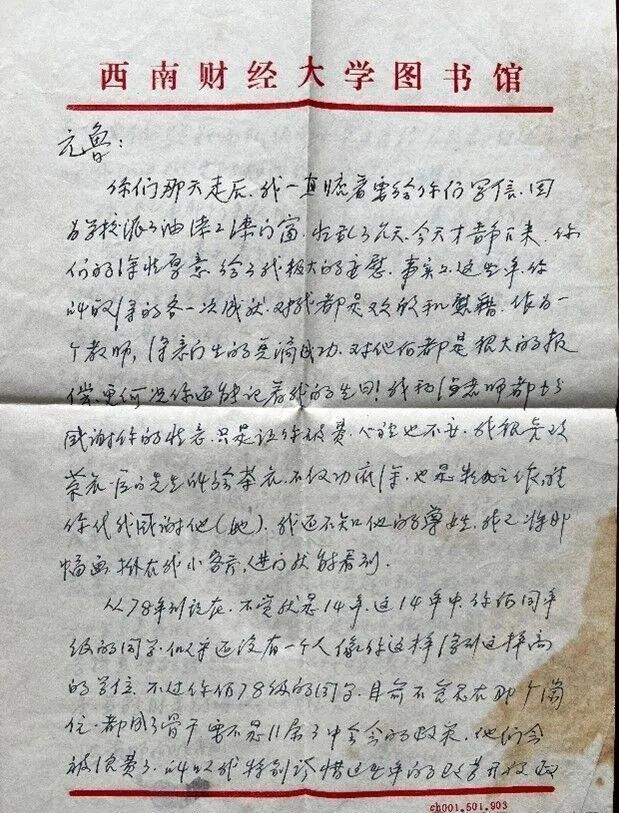 西南财经大学图书馆
元鲁：
你们那天走后，我一直惦着要给你们写信，因
为学校派了油漆工漆门窗，忙乱了几天，今天才静下来。你
们的深情厚意给了我极大的安慰。事实上这些年，你
所取得的每一次成就，对我都是欢欣和慰藉。作为一
个教师，学生的点滴成功，对他们都是极大的报
偿，更何况你还能记着我的生日！我和老师都
感谢你的情意，只是让你破费，心里也不安。我很喜欢
先生所绘茶花，不仅功底深，也是
你代我感谢他（她），我还不知他的尊姓，我已将那
幅画挂在我小客厅，进门就能看到。
从78年到现在，不觉就是14年，这14年中，你们同年
级的同学，似乎还没有一个人像你这样得到这样高
的学位，不过你们78级的同学，目前不管是在那个岗
位，都成了骨干，要不是11届三中全会的政策，他们会
被浪费了，所以我特别珍惜这些年的改革开放政
ch001.501.903